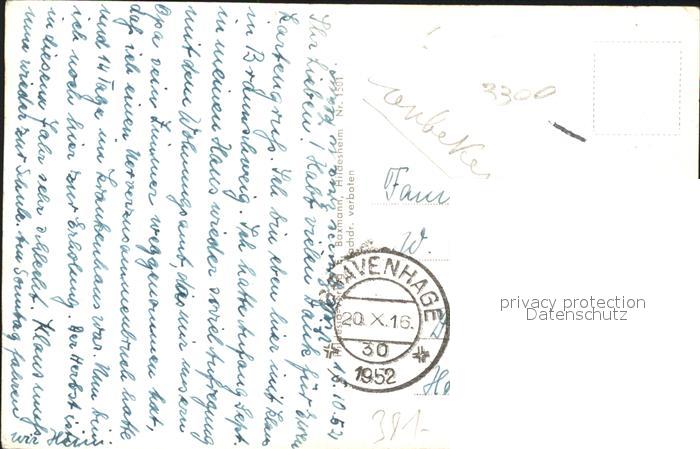 Ihr Lieben! Habt vielen Dank für Euren
Kartengruß. Ich bin eben hier mit Klaus
in Braunschweig. Ich hatte Anfang Sept.
in meinem Haus wieder soviel Aufregung
mit dem Wohnungsamt, das mir unsern
Opa sein Zimmer weggenommen hat,
daß ich einen Nervenzusammenbruch hatte
und 14 Tage im Krankenhaus war. Nun bin
ich noch hier zur Erholung. Der Herbst ist
in diesem Jahr sehr schlecht. Klaus muß
nun wieder zur Schule. Am Sonntag fahren
wir Heim
15.10.52
Baxmann, Hildesheim Nr. 1501
Nachdr. verboten
3300
Fam
W.
GRAVENHAGE
20.X.16.
30
1952
Ho
381-
privacy protection
Datenschutz